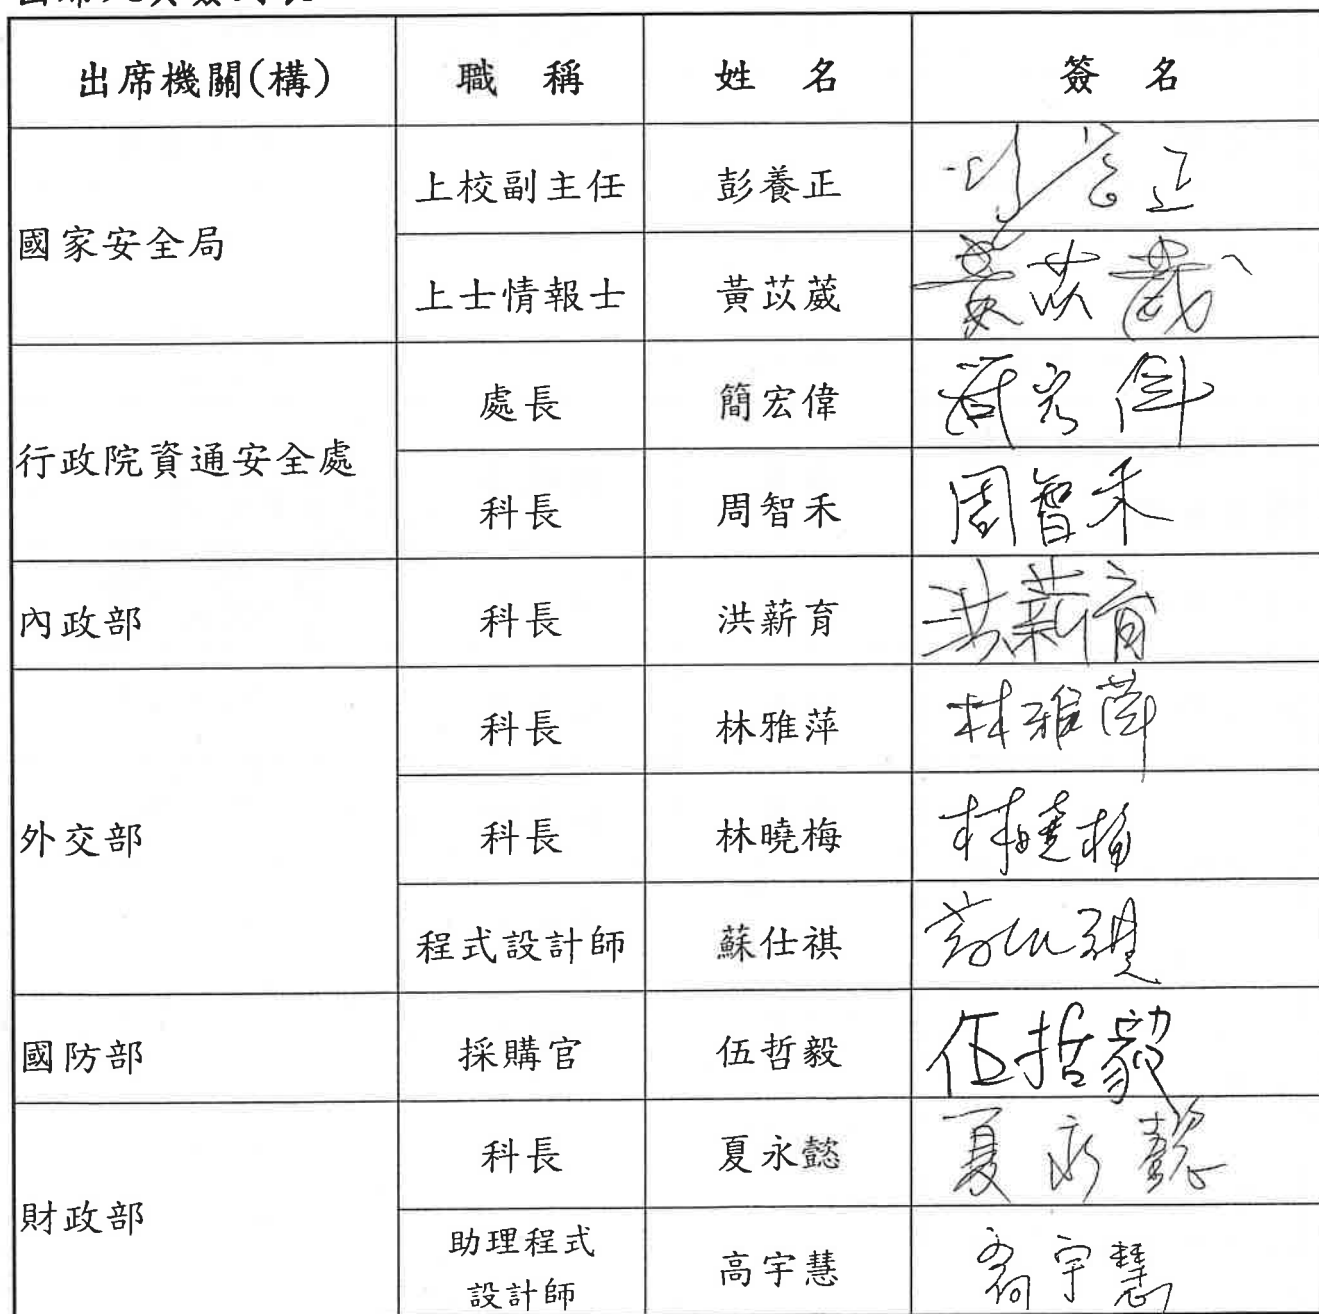 出席機關(構) 職 稱 姓 名 簽 名
國家安全局 上校副主任 彭養正
上士情報士 黃苡葳 黃苡葳
行政院資通安全處 處長 簡宏偉 簡宏偉
科長 周智禾 周智禾
內政部 科長 洪薪育 洪薪育
外交部 科長 林雅萍 林雅萍
科長 林曉梅 林曉梅
程式設計師 蘇仕祺
國防部 採購官 伍哲毅 伍哲毅
財政部 科長 夏永懿 夏永懿
助理程式
設計師 高宇慧 高宇慧